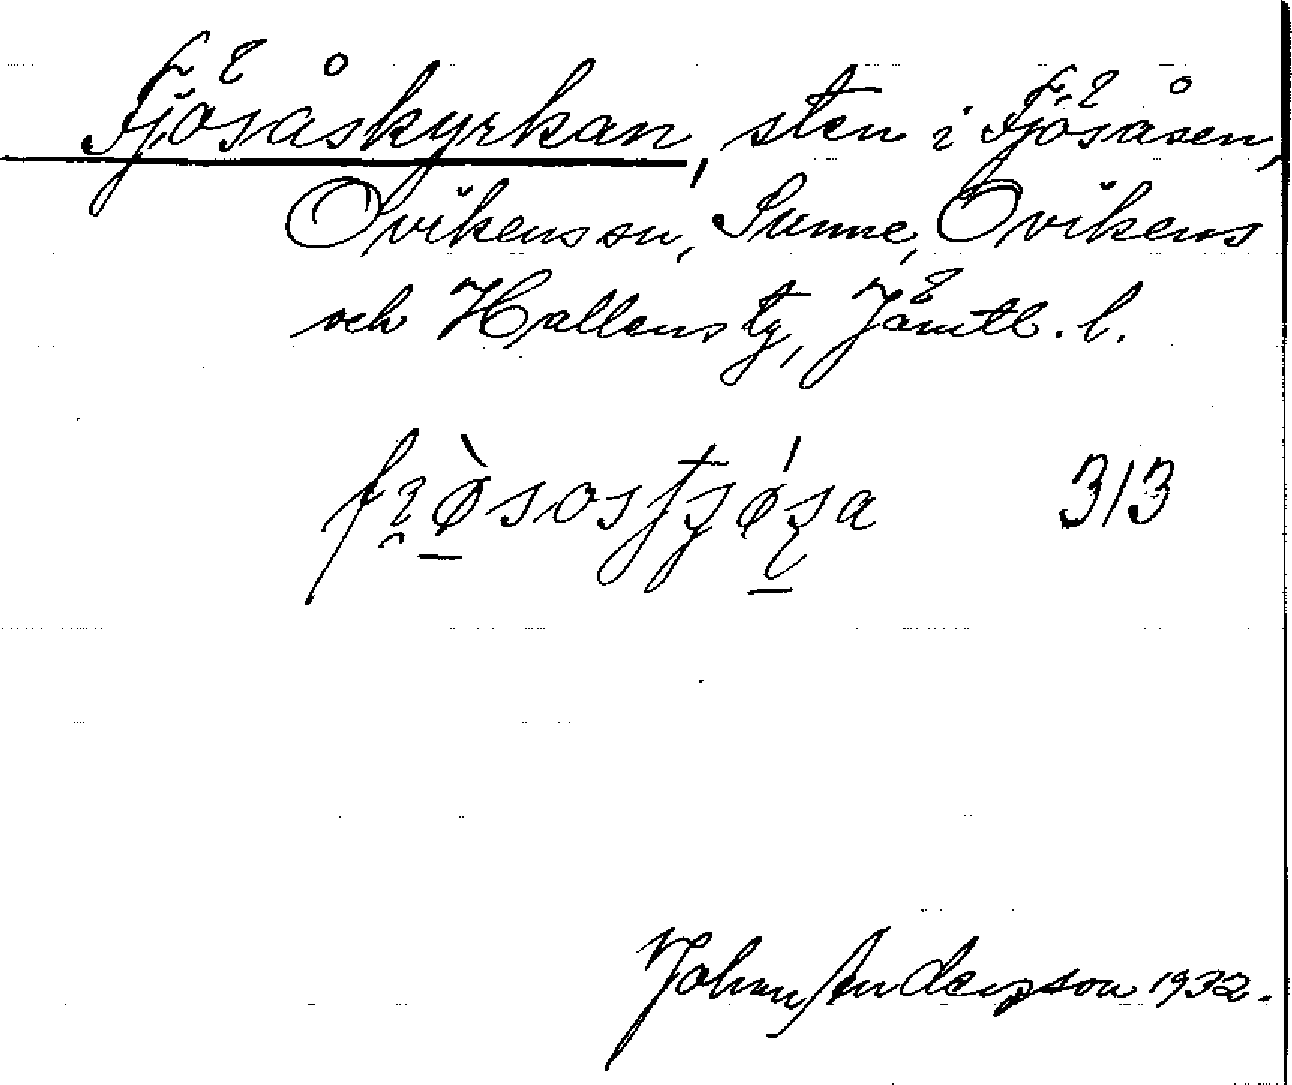 Fjösåskyrkan, sten i Fjösåsen,
Ovikens sn, Sunne, Ovikens
och Hallens tg, Jämtl. l.
313
John Andersson 1932.